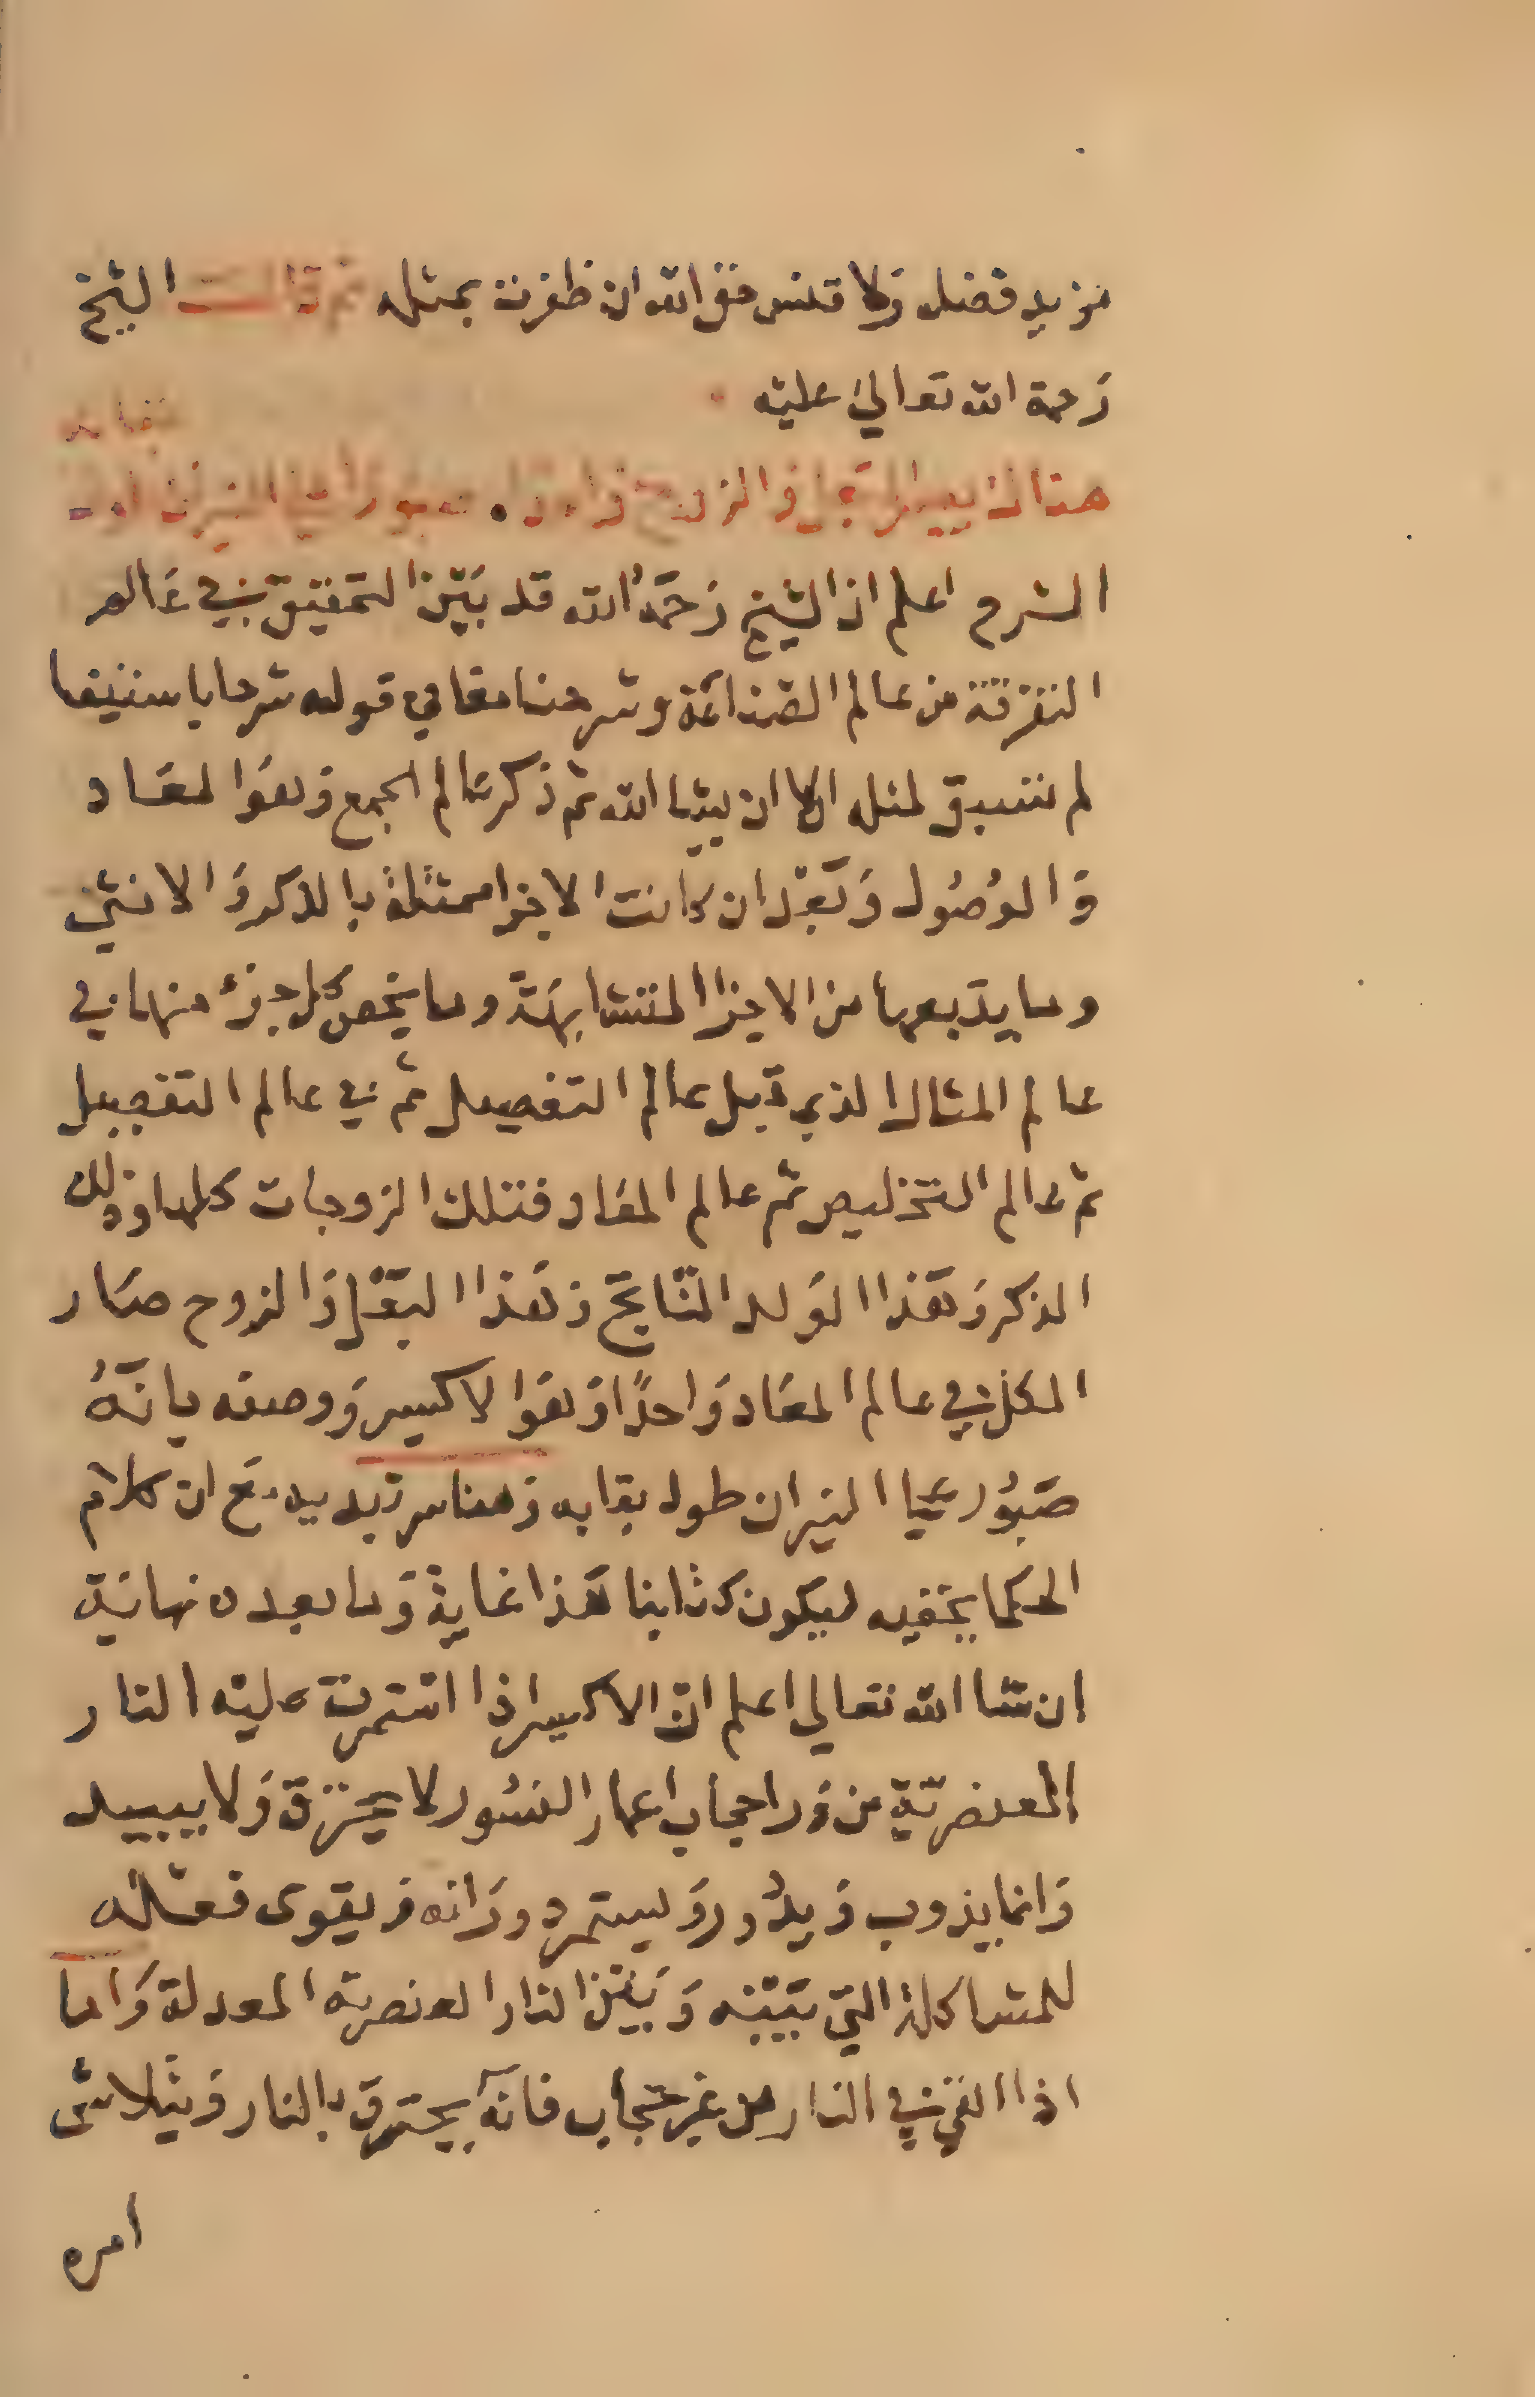 مزيد فضل ولا تنس حق الله ان ظفرت بمثله ثم قال الشيخ
رحمة الله تعالي عليه
هنالك يصير البعل والزوج واحدا صبور علي النيران
الشرح اعلم ان الشيخ رحمه الله قد بين التحقيق في عالم
التفرقة من عالم الصناعة وشرحنا معاني قوله شرحا باستيفا
لم نسبق لمثله الا ان يشا الله ثم ذكر عالم الجمع وهو المعاد
والوصول وبعد ان كانت الاجزا ممثلة بالذكر والانثي
وما يتبعها من الاجزا المتشابهة وما يخص كل جزء منها في
عالم المثال الذي قبل عالم التفصيل ثم في عالم التفصيل
ثم عالم التخليص ثم عالم المعاد فتلك الزوجات كلها وذلك
الذكر وهذا الولد الناتج وهذا البعل والزوج صار
الكل في عالم المعاد واحدا وهو الاكسير ووصفه بانه
صبور علي النيران طول بقايه وهنا سر نبديه مع ان كلام
الحكما يخفيه ليكون كتابنا هذا غاية وما بعده نهاية
ان شا الله تعالي اعلم ان الاكسير اذا استمرت عليه النار
العنصرية من ورا حجاب اعمار النسور لا يحترق ولا يبيد
وانما يذوب ويدور ويستمر دورانه ويقوى فعله
للمشاكلة التي بينه وبين النار العنصرية المعدلة واما
اذا القي في النار من غير حجاب فانه يحترق بالنار ويتلاشى
امره